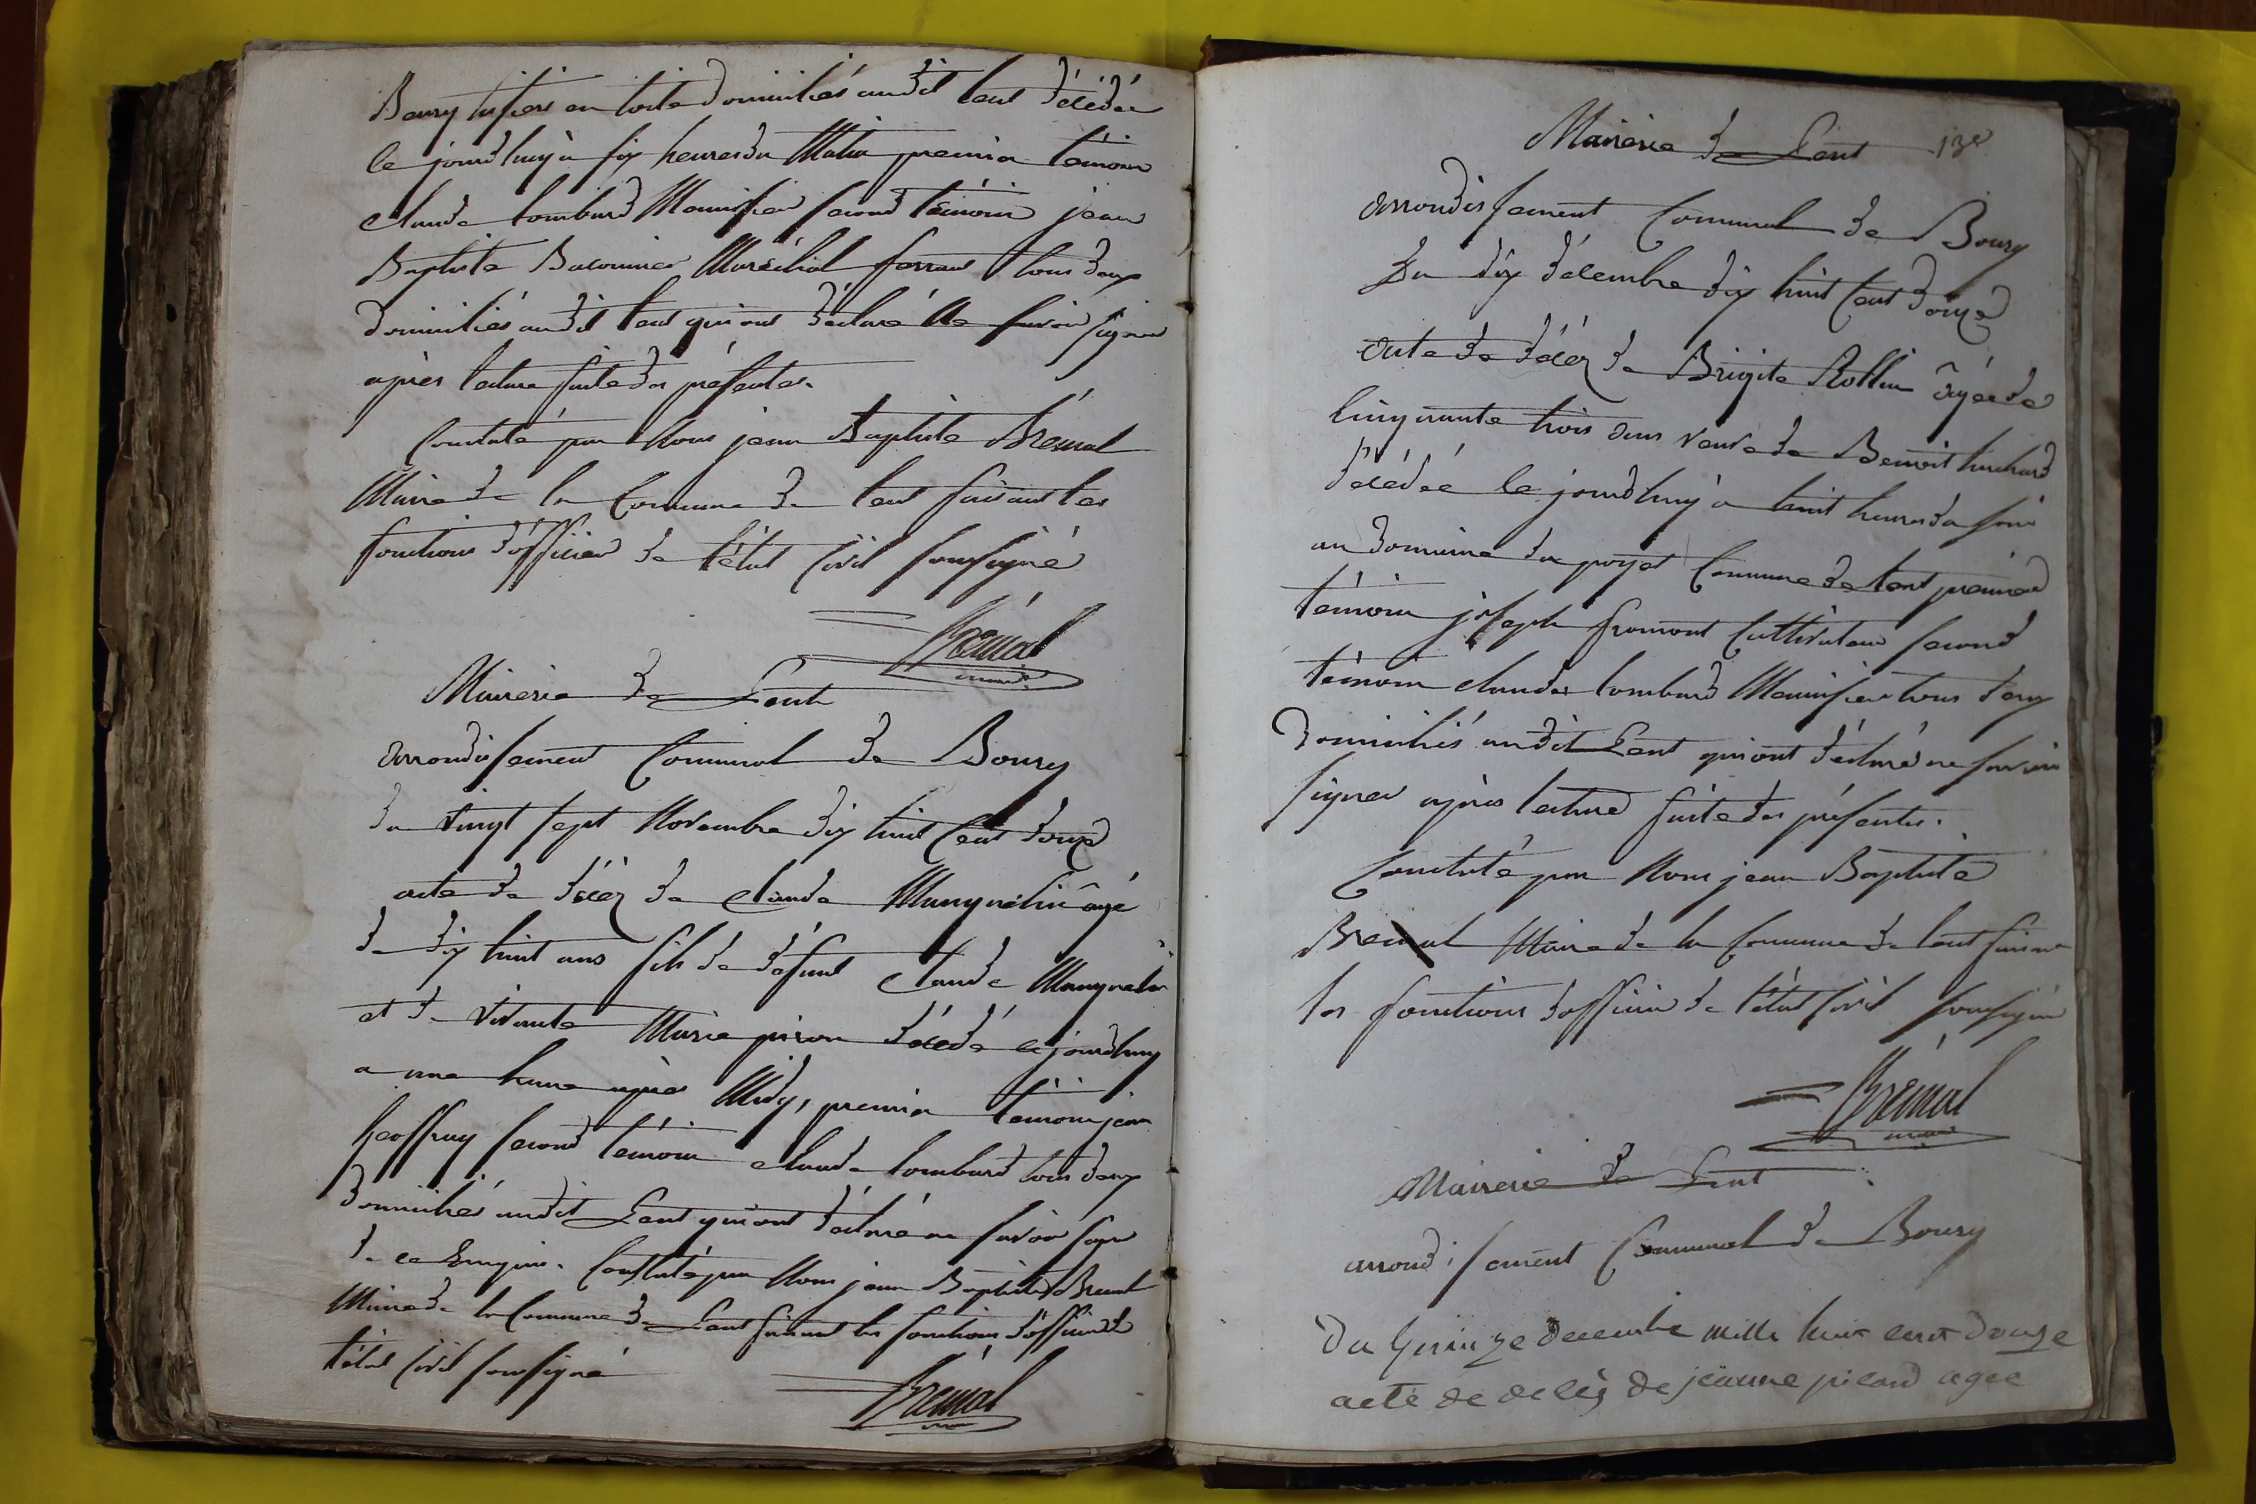 Bourg tisier en toile domiciliés audit lent décédée
le jourdhuy à six heures du Matin premier témoin
claude lombard Menuisier second témoin jean
Baptiste Maréchal ferrant tous deux
domiciliés audit lent qui ont déclaré Ne savoir signer
après lecture faite des présentes.
Constaté par Nous jean Baptiste Brémal
Maire de la Commune de lent faisant les
fonctions d'officier de l'état Civil soussigné
Brémal
maire
Mairerie de Lent
arrondissement Communal de Bourg
du vingt sept Novembre dix huit Cent douze
acte de décez de Claude âgé
de dix huit ans fils de défunt Claude
et de vivante Marie décédé lejourdhuy
a une heure après Midy, premier témoin jean
geoffray second témoin claude lombard tous deux
domiciliés audit Lent qui ont déclaré ne savoir signer
de ce Enquis. Constaté par Nous jean Baptiste Bremal
Maire de la Commune de Lent faisant les fonctions d'officier de
l'état Civil soussigné
Brémal
maire
Mairerie de Lent
arrondissement Communal de Bourg
Du dix décembre dix huit Cent douze
acte de décez de Brigite Rollin âgée de
Cinquante trois ans veuve de Benoit
décédée le jourdhuy à huit heures du soir
au domaine du Commune de lent premier
témoin joseph fromont Cultivateur second
témoin claude lombard Menuisier tous deux
domiciliés audit Lent qui ont déclaré ne savoir
signer après lecture faite des présentes.
Constaté par Nous jean Baptiste
Bremal Maire de la Commune de lent faisant
les fonctions d'officier de l'état Civil soussigné
Brémal
maire
Mairerie de Lent
arrondissement Communal de Bourg
Du Quinze decembre mille huit cent douze
acte de decès de jeanne picard agee